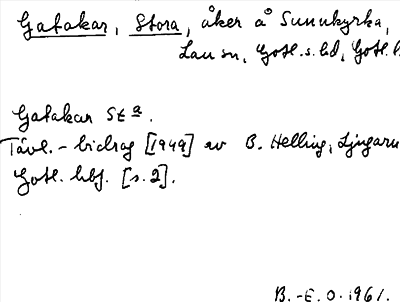 Gatakar, Stora, åker å Sunnkyrka,
Lau sn, Gotl. s. hd, Gotl. l
Gatakar St a.
Tävl. - bidrag [1949] av B. Helling, Ljugarn
Gotl. hbf. [s. 2].
B. -E. O. 1961.